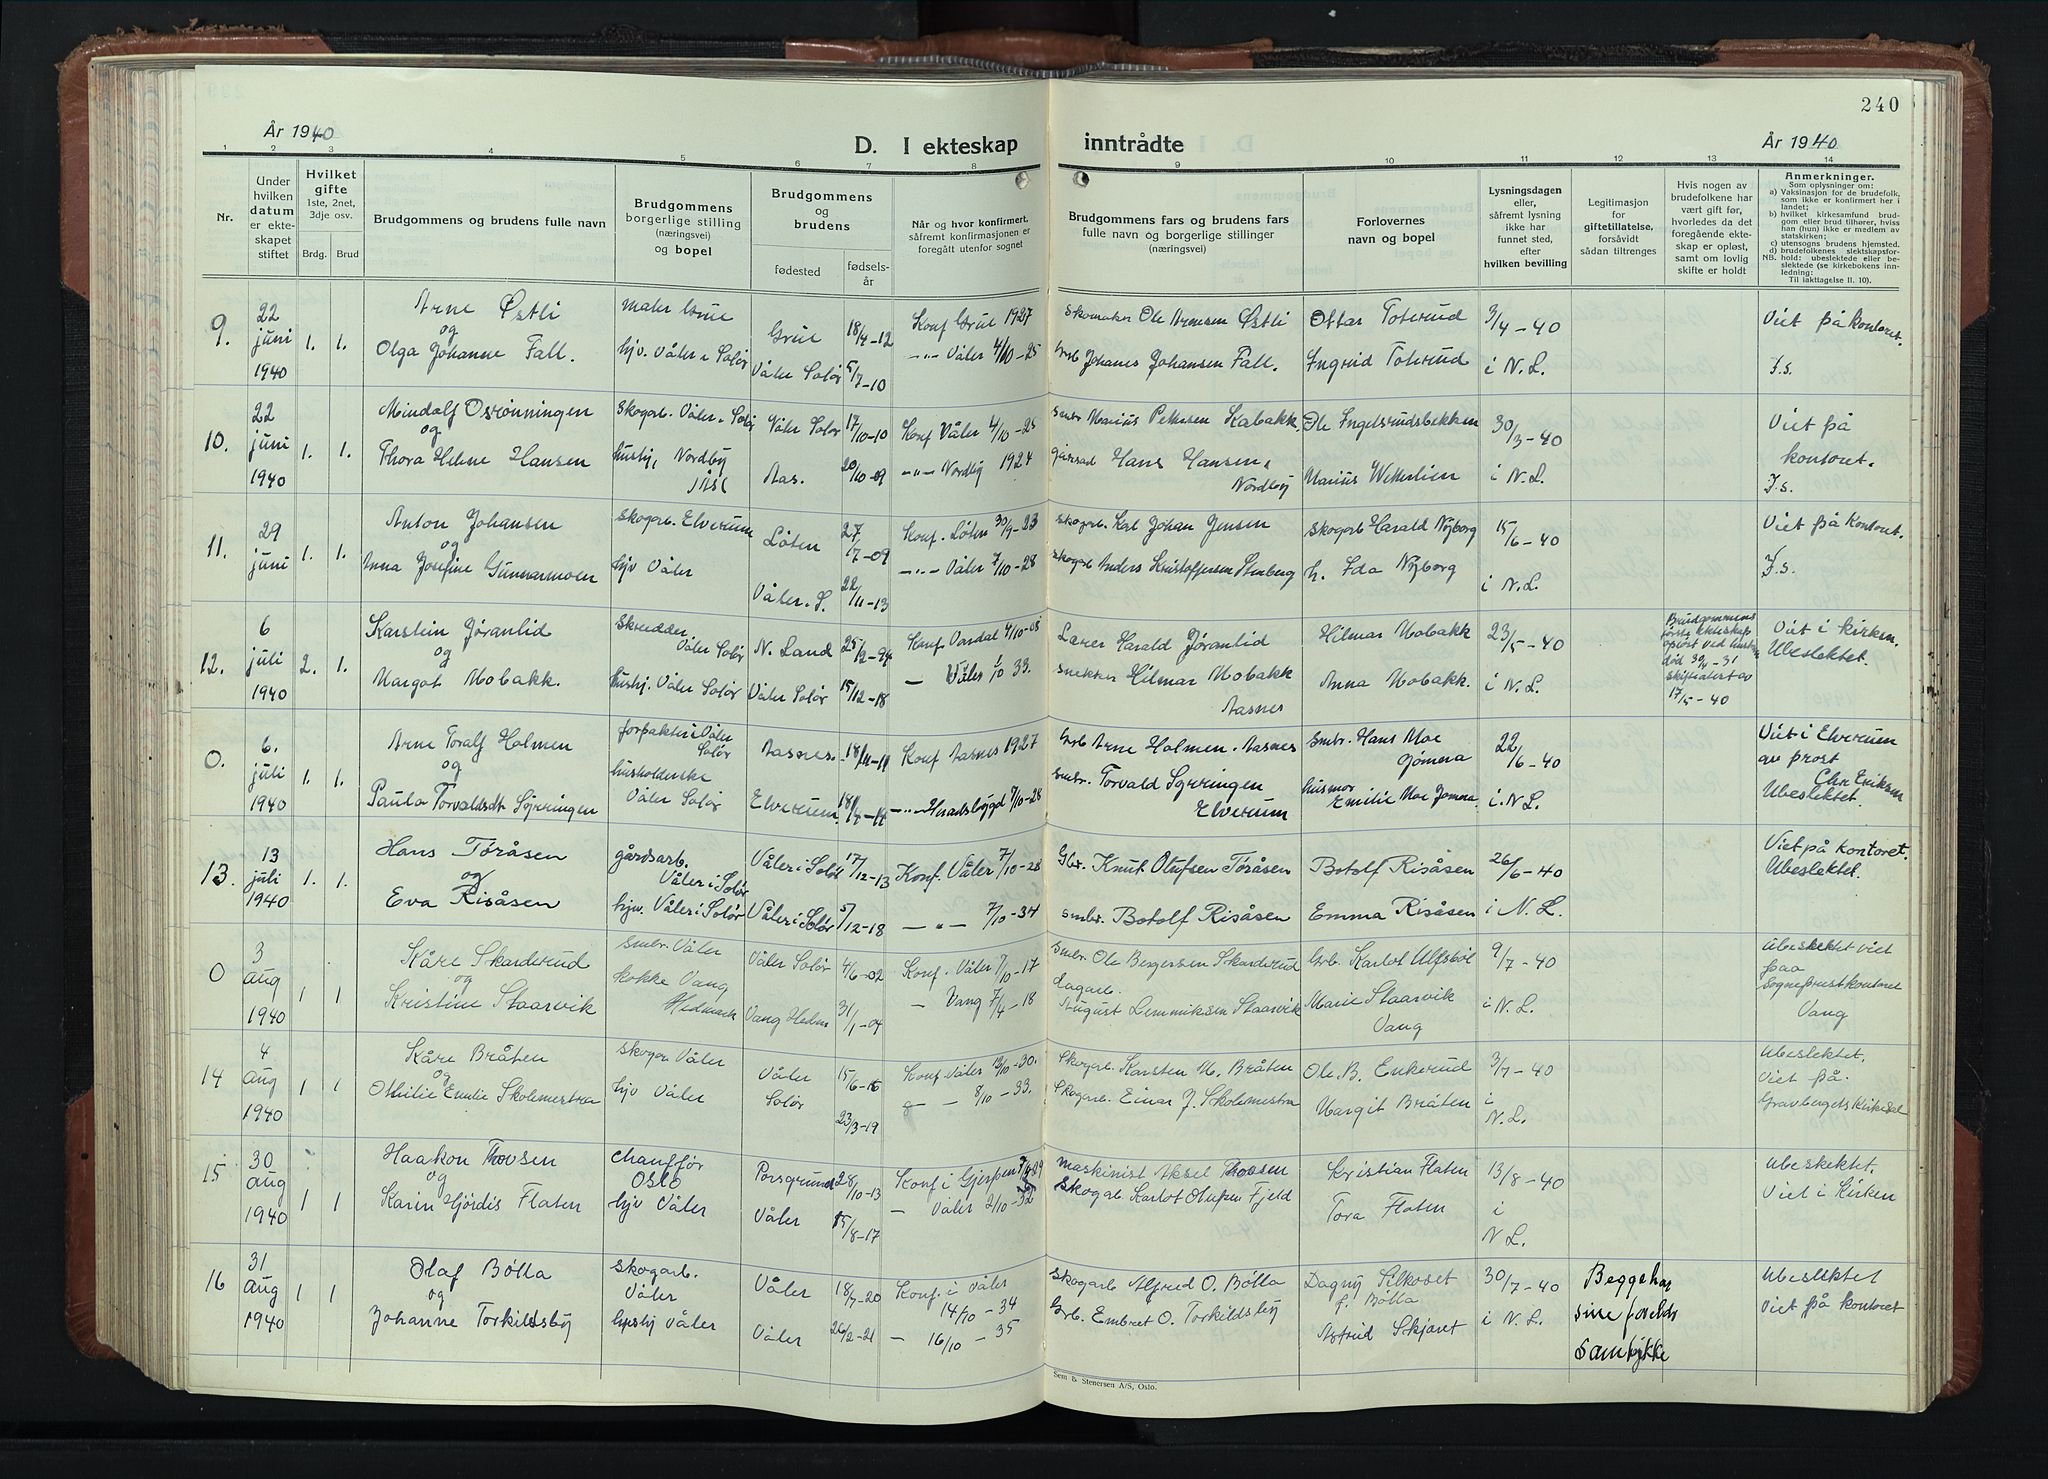 240
År 1940
D. I ekteskap inntrådte
År 1940
1 2 3 4 5 6 7 8 9 10 11 12 13 14
Nr.
Under hvilken datum er ekteskapet stiftet
Hvilket gifte 1ste, 2net, 3dje osv.
Brdg. Brud
Brudgommens og brudens fulle navn
Brudgommens borgerlige stilling (næringsvei) og bopel
Brudgommens og brudens
fødested
fødselsår
Når og hvor konfirmert, såfremt konfirmasjonen er foregått utenfor sognet
Brudgommens fars og brudens fars fulle navn og borgerlige stillinger (næringsvei)
Forlovernes navn og bopel
Lysningsdagen eller, såfremt lysning ikke har funnet sted, efter hvilken bevilling
Legitimasjon for giftetillatelse, forsåvidt sådan tiltrenges
Hvis nogen av brudefolkene har vært gift før, hvorledes da det foregående ekteskap er opløst, samt om lovlig skifte er holdt
Anmerkninger.
Som oplysninger om:
a) Vaksinasjon for de brudefolk, som ikke er konfirmert her i landet;
b) hvilket kirkesamfund brudgom eller brud tilhører, hviss han (hun) ikke er medlem av statskirken;
c) utensogns brudens hjemsted.
d) brudefolkenes slektskapsforhold: ubeslektede eller beslektede (se kirkebokens innledning:
NB.
Til iakttagelse II. 10).
9. 22 juni 1940 1. 1.
Arne Østli
og
Olga Johanne Fall.
maler Grue
hjv. Våler i Solør
Grue 18/4-12
Våler Solør 5/7-10
Konf Grue 1927
-"- Våler 4/10-25
Skomaker Ole Arnesen Østli
Grb Johanes Johansen Fall.
Ottar Toterud
Ingrid Toterud
3/4-40
i N.L.
Viet på kontoret.
I.s.
10. 22 juni 1940 1. 1.
Mindolf Osrønningen
og
Thora Helene Hansen
Skogarb. Våler i Solør
hushj. Nordby
i Ås
Våler Solør 17/10-10
Aas. 20/10-09
Konf Våler 4/10-25
-"- Nordby 1924
Smbr Marius Pettersen Kabakk.
Hans Hansen,
Nordby
Ole Ingelsrudsbekken
Marius Wetterlien
30/3-40
i N.L.
Viet på
kontoret.
I.s.
11. 29 juni 1. 1.
Anton Johansen
og
Anna Josefine Gunnarmoen
Skogarb. Elverum
hjv Våler
Løten 27/7-09
Våler. S. 22/11-13
Konf. Løten 30/9-23
-"- Våler 7/10-28
Skogarb. Karl Johan Jensen
Skogarb Anders Kristoffersen Stenberg
Skogarb Harald Nyborg
h. Ida Nyborg
15/6-40
i N.L.
Viet på kontoret.
I.s.
12. 6 juli 1940 2. 1.
Karstein Jøranlid
og
Margot Mobakk.
Skredder
Våler Solør
hushj. Våler Solør
N. Land 25/2-94
Våler Solør 15/12-18
Konf. Vardal 4/10-08
- Våler 1/10 33.
Lærer Harald Jøranlid
snekker Hilmar Mobakk
Aasnes
Hilmar Mobakk
Anna Mobakk.
23/5-40
i N.L.
Brudgommens
første ekteskap
opløst ved hustr
død 30/4-31
Skifteattest av
17/5-40
Viet i kirken.
Ubeslektet.
0. 6. juli 1940 1. 1.
Arne Toralf Holmen
og
Paula Torvaldsdt Syrringen
forpakter i Våler
Solør
husholderske
Våler Solør
Aasnes. 18/11-11
Elverum. 18/4-14
Konf Aasnes 1927
-"- Heradsbygd 7/10-28
Grb Arne Holmen. Aasnes
Smbr. Torvald Syrringen
Elverum
Smbr. Hans Moe
Jømna
husmor
Emilie Moe Jømna.
22/6-40
i N.L.
Viet i Elverum
av prost
Chr. Eriksen
Ubeslektet.
13. 13 juli 1940 1. 1.
Hans Tøråsen
og
Eva Risåsen
gårdsarb.
Våler i Solør
hjv. Våler i Solør
Våler i Solør 17/12-13
Våler i Solør 5/12-18
Konf. Våler 7/10-28
-"- 7/10-34
Gbr. Knut Olufsen Tøråsen
smbr. Botolf Risåsen
Botolf Risåsen
Emma Risåsen
26/6-40
i N.L.
Viet på kontoret.
Ubeslektet.
0 3 aug 1940 1 1
Kåre Skarderud
og
Kristine Staarvik
Smbr. Våler
kokke Vang
Hedmark
Våler Solør 4/6-02
Vang Hedm 31/1-04
Konf. Våler 7/10-17
- Vang 7/4-18
Smbr. Ole Bergersen Skarderud
dagarb.
August Lemmiksen Staarvik
Grb. Karlot Ulfsbøl
Marie Staarvik
Vang
9/7-40
i N.L.
Ubeslektet viet
paa
Sogneprestkontoret
Vang
14 4 aug 1940 1 1
Kåre Bråten
og
Othilie Emilie Skolemestra
Skogar Våler
hjv Våler
Våler 15/6-16
Solør 23/3-19
Konf. Våler 12/10-30.
- 8/10-33.
Skogarb. Karsten M. Bråten
Skogarb. Einar J. Skolemestra
Ole B. Enkerud
Margit Bråten
3/7-40
i
N.L.
Ubeslektet.
Viet på.
Gravbergets Kirkedal
15 30 aug 1940 1 1
Haakon Thovsen
og
Karin Hjørdis Flaten
Chauffør
OSLO
hjv Våler
Porsgrund 28/10-13
Våler 15/8-17
Konf i Gjerpen
- Våler 2/10-32
maskinist Aksel Thovsen
Skogarb Karlot Olufsen Fjeld
Kristian Flaten
Tora Flaten
13/8-40
i
N L.
Ubeslektet.
Viet i Kirken
16 31 aug 1940 1 1
Olaf Bølla
og
Johanne Torkildsby
Skogarb.
Våler
hushj Våler
Våler 18/7-20
Våler 26/2-21
Konf. i Våler
14/10-34
- 16/10-35
Skogarb Alfred O. Bølla
Grb. Embret O. Torkildsby
Dagny Silkoset
f. Bølla
Astrid Skjæret
30/7-40
i N.L.
Begge har
sine foreldr
Samtykke
Ubeslektet
Viet på kontoret
Sem & Stenersen A/S, Oslo.